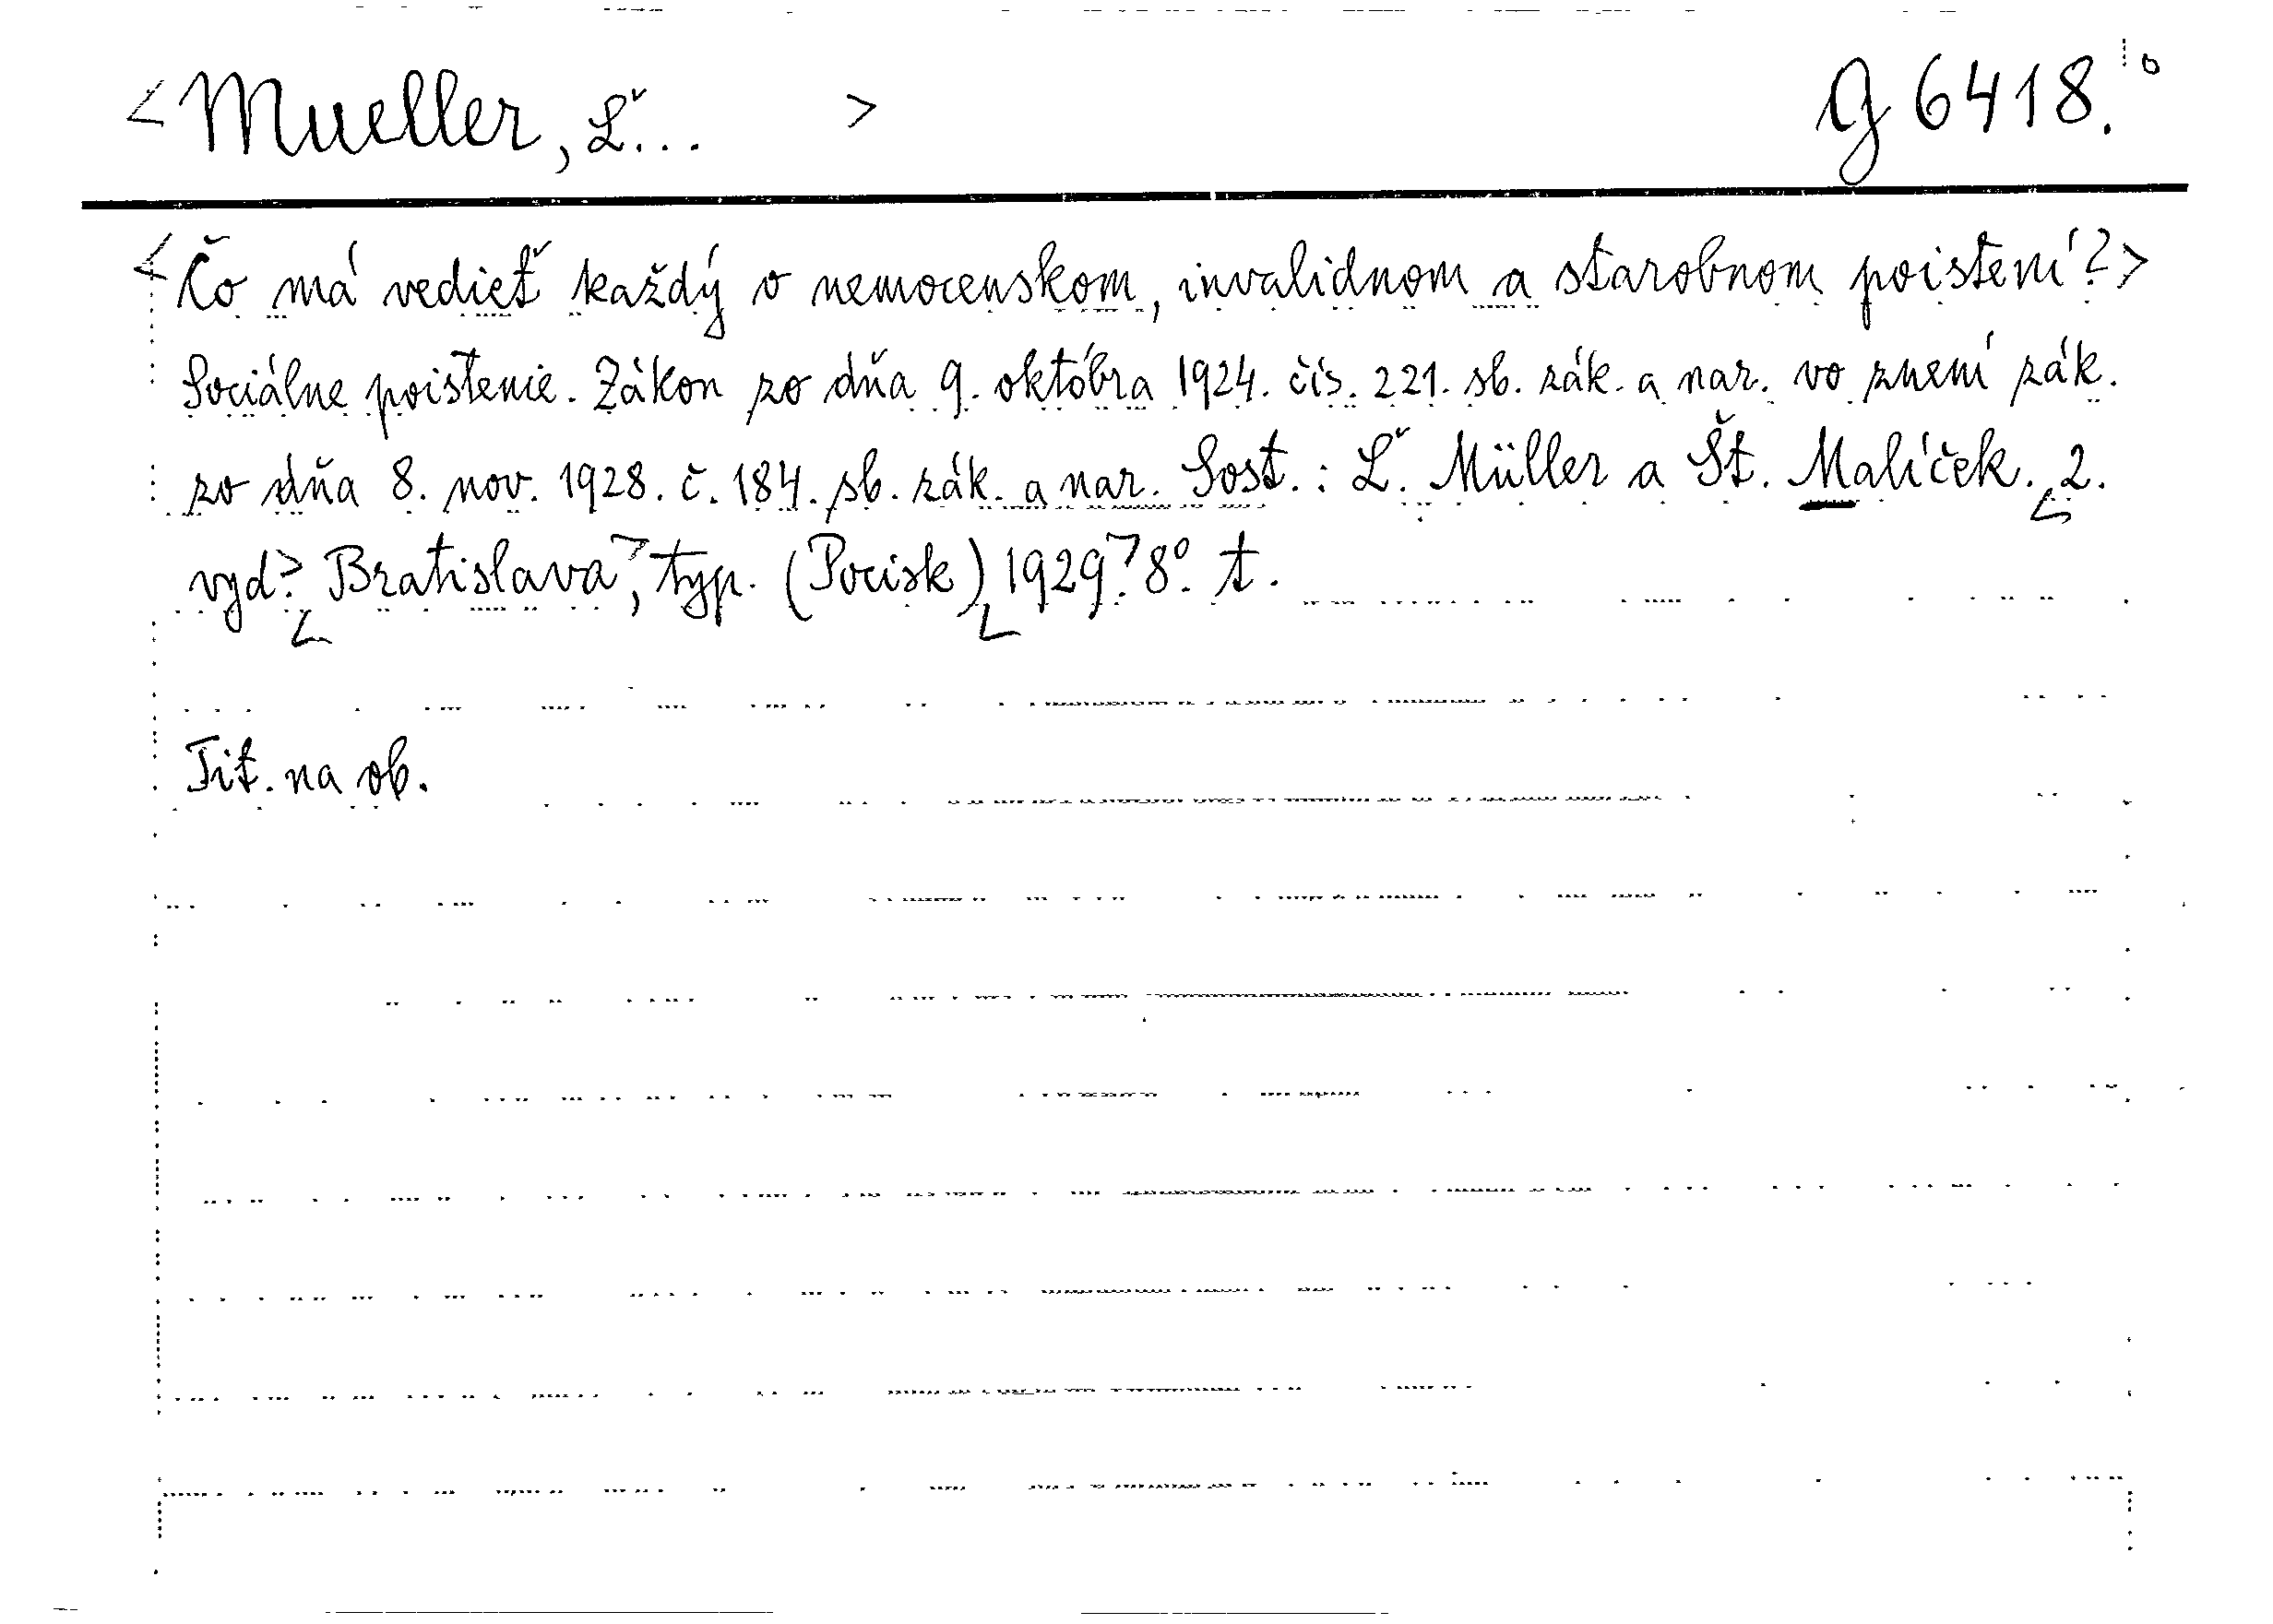 <Mueller, Ľ... > G 6418.
<Čo má vedieť každý o nemocenskom, invalidnom a starobnom poistení?>
Sociálne poistenie. Zákon zo dňa 9. októbra 1924. čís. 221. sb. zák. a nar. vo znení zák.
zo dňa 8. nov. 1928. č. 184. sb. zák. a nar. Sost.: Ľ. Müller a Št. Malíček. <2.
vyd.> <Bratislava>, typ. (Pocisk) <1929>. 8°. t.
Tit. na ob.